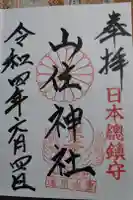 奉拝
日本總鎮守
山住神社
令和四年六月四日